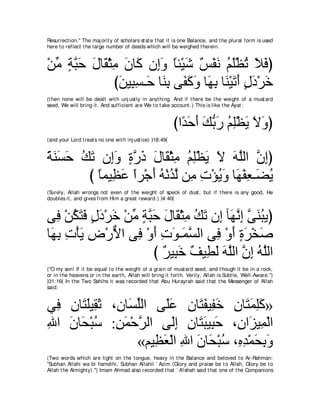 Resurrection.'' The majority of scholars state that it is one Balance, and the plural form is used
here to reflect the large number of deeds which will be weighed therein.
فَلاَ تُظْلَمُ نَفْسٌ شَيْئاً وَإِن كَانَ مِثْقَالَ حَبَّةٍ مِّنْ
خَرْدَلٍ أَتَيْنَا بِهَا وَكَفَى بِنَا حَـسِبِينَ)
(then none will be dealt with unjustly in anything. And if there be the weight of a mustard
seed, We will bring it. And sufficient are We to take account.) This is like the Ayat:
(وَلاَ يَظْلِمُ رَبُّكَ أَحَدًا)
(and your Lord treats no one with injustice) )18:49(
(إِنَّ اللَّهَ لاَ يَظْلِمُ مِثْقَالَ ذَرَّةٍ وَإِن تَكُ حَسَنَةً
يُضَـعِفْهَا وَيُؤْتِ مِن لَّدُنْهُ أَجْراً عَظِيماً )
(Surely, Allah wrongs not even of the weight of speck of dust, but if there is any good, He
doubles it, and gives from Him a great reward.) )4:40(
(يبُنَىَّ إِنَّهَآ إِن تَكُ مِثْقَالَ حَبَّةٍ مِّنْ خَرْدَلٍ فَتَكُنْ فِى
صَخْرَةٍ أَوْ فِى السَّمَـوَتِ أَوْ فِى الاٌّرْضِ يَأْتِ بِهَا
اللَّهُ إِنَّ اللَّهَ لَطِيفٌ خَبِيرٌ )
("O my son! If it be equal to the weight of a grain of mustard seed, and though it be in a rock,
or in the heavens or in the earth, Allah will bring it forth. Verily, Allah is Subtle, Well-Aware.")
)31:16( In the Two Sahihs it was recorded that Abu Hurayrah said that the Messenger of Allah
said:
«كَلِمَتَانِ خَفِيفَتَانِ عَلَى اللِّسَانِ، ثَقِيلَتَانِ فِي
الْمِيزَانِ، حَبِيبَتَانِ إِلَى الرَّحْمَنِ: سُبْحَانَ اللهِ
وَبِحَمْدِهِ، سُبْحَانَ اللهِ الْعَظِيم»
(Two words which are light on the tongue, heavy in the Balance and beloved to Ar-Rahman:
"Subhan Allahi wa bi hamdihi, Subhan Allahil `Azim (Glory and praise be to Allah, Glory be to
Allah the Almighty).") Imam Ahmad also recorded that `A'ishah said that one of the Companions